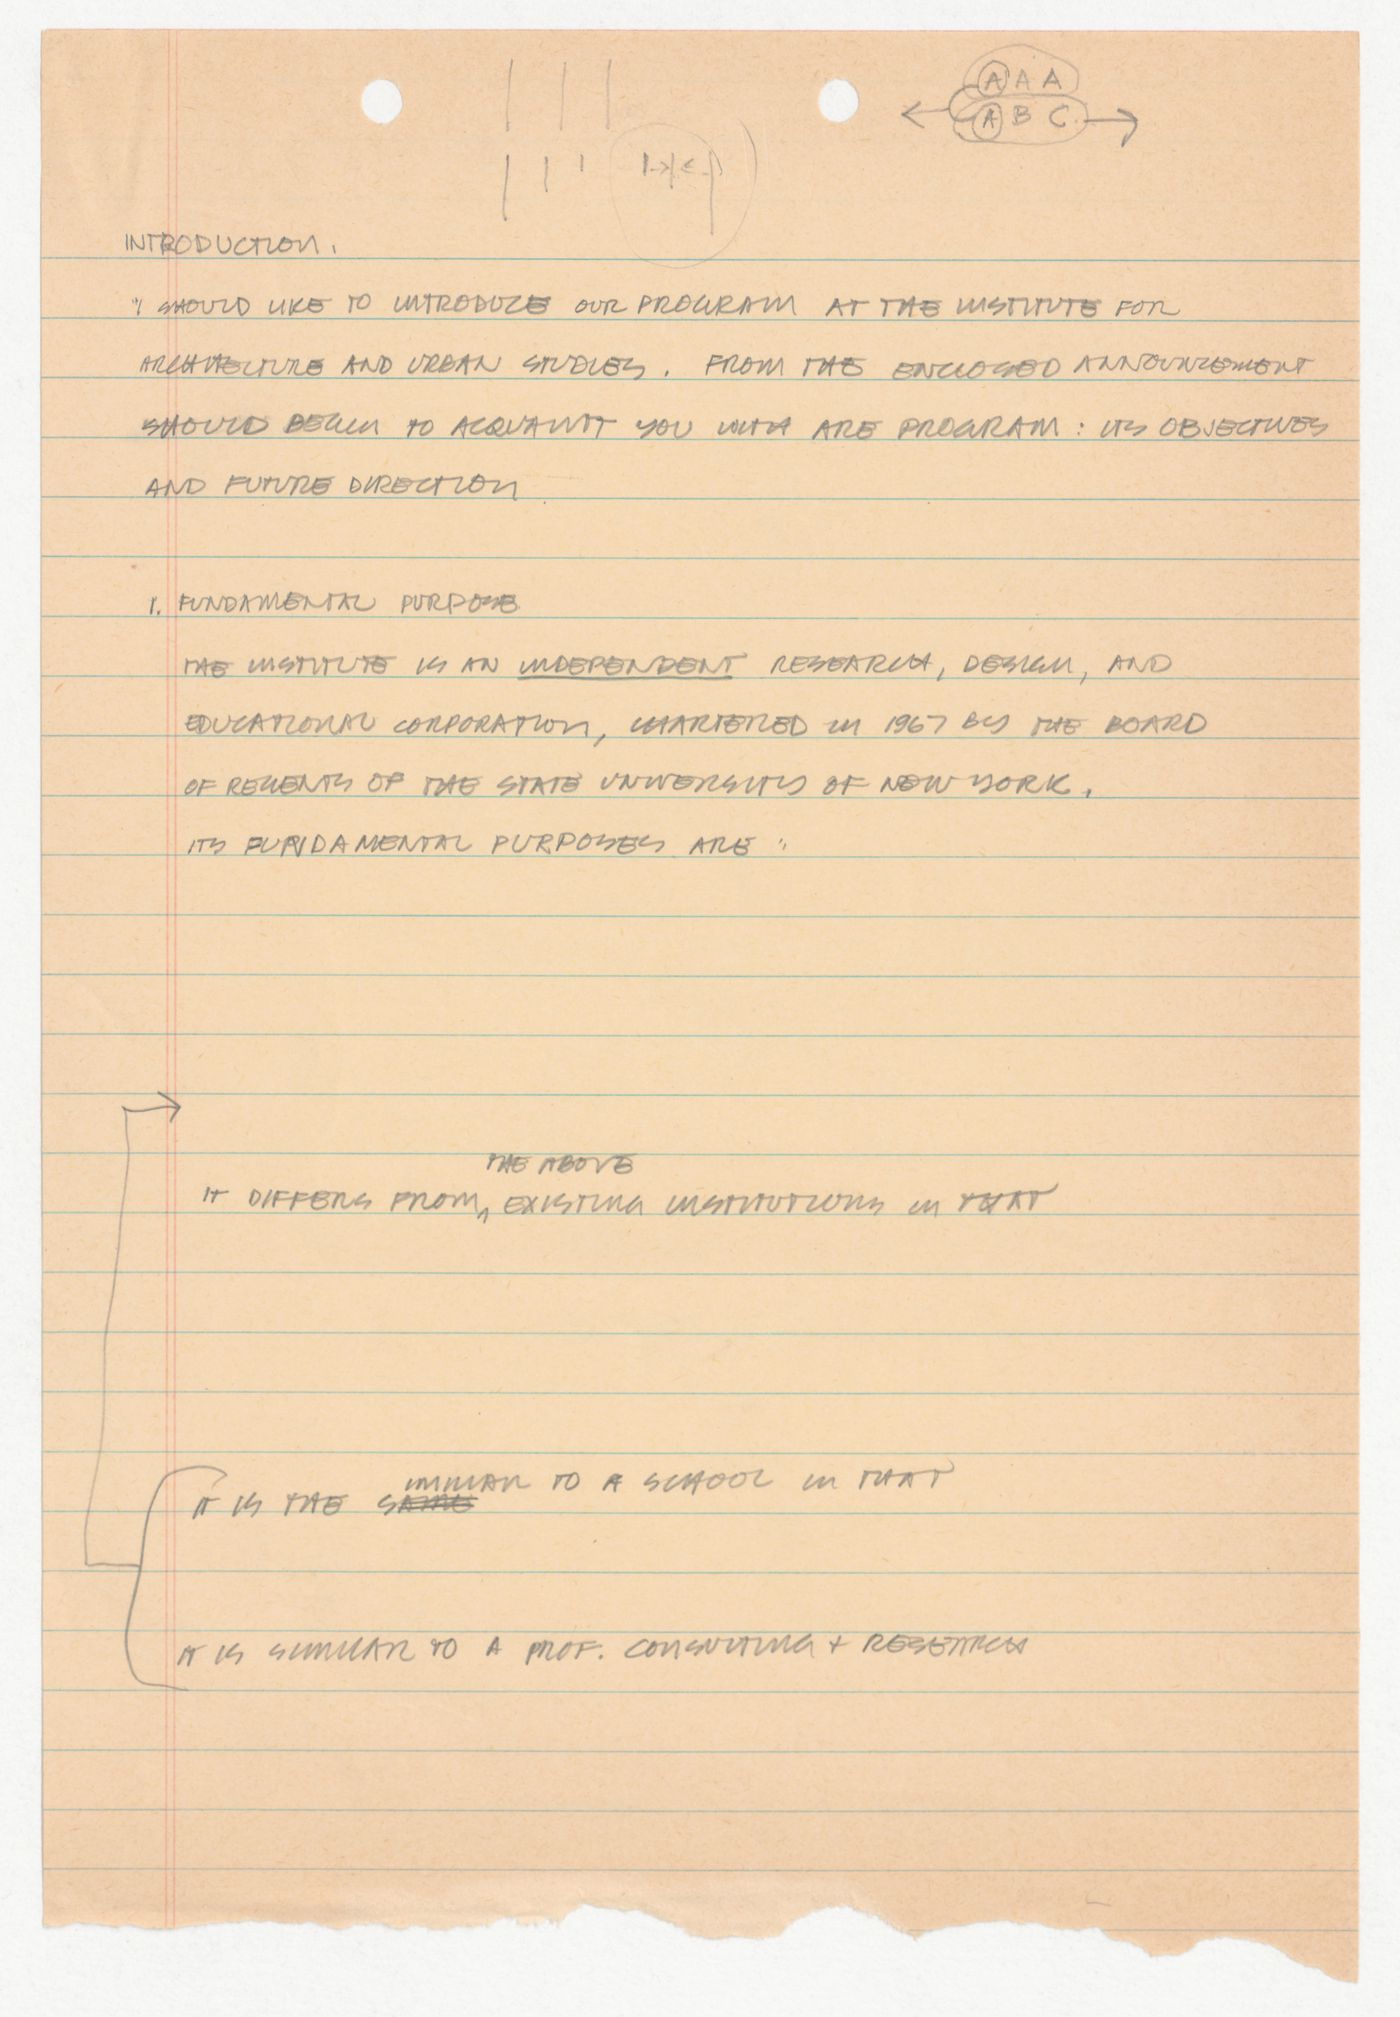 A A A
A B C
INTRODUCTION.
"I SHOULD LIKE TO INTRODUCE OUR PROGRAM AT THE INSTITUTE FOR
ARCHITECTURE AND URBAN STUDIES. FROM THE ENCLOSED ANNOUNCEMENT
SHOULD BEGIN TO ACQUAINT YOU WITH ARE PROGRAM: ITS OBJECTIVES
AND FUTURE DIRECTION
1. FUNDAMENTAL PURPOSE
THE INSTITUTE IS AN INDEPENDENT RESEARCH, DESIGN, AND
EDUCATIONAL CORPORATION, CHARTERED IN 1967 BY THE BOARD
OF REGENTS OF THE STATE UNIVERSITY OF NEW YORK.
ITS FUNDAMENTAL PURPOSES ARE "
THE ABOVE
IT DIFFERS FROM, EXISTING INSTITUTIONS IN THAT
IMILAR TO A SCHOOL IN THAT
IT IS THE SAME
IT IS SIMILAR TO A PROF. CONSULTING + RESEARCH